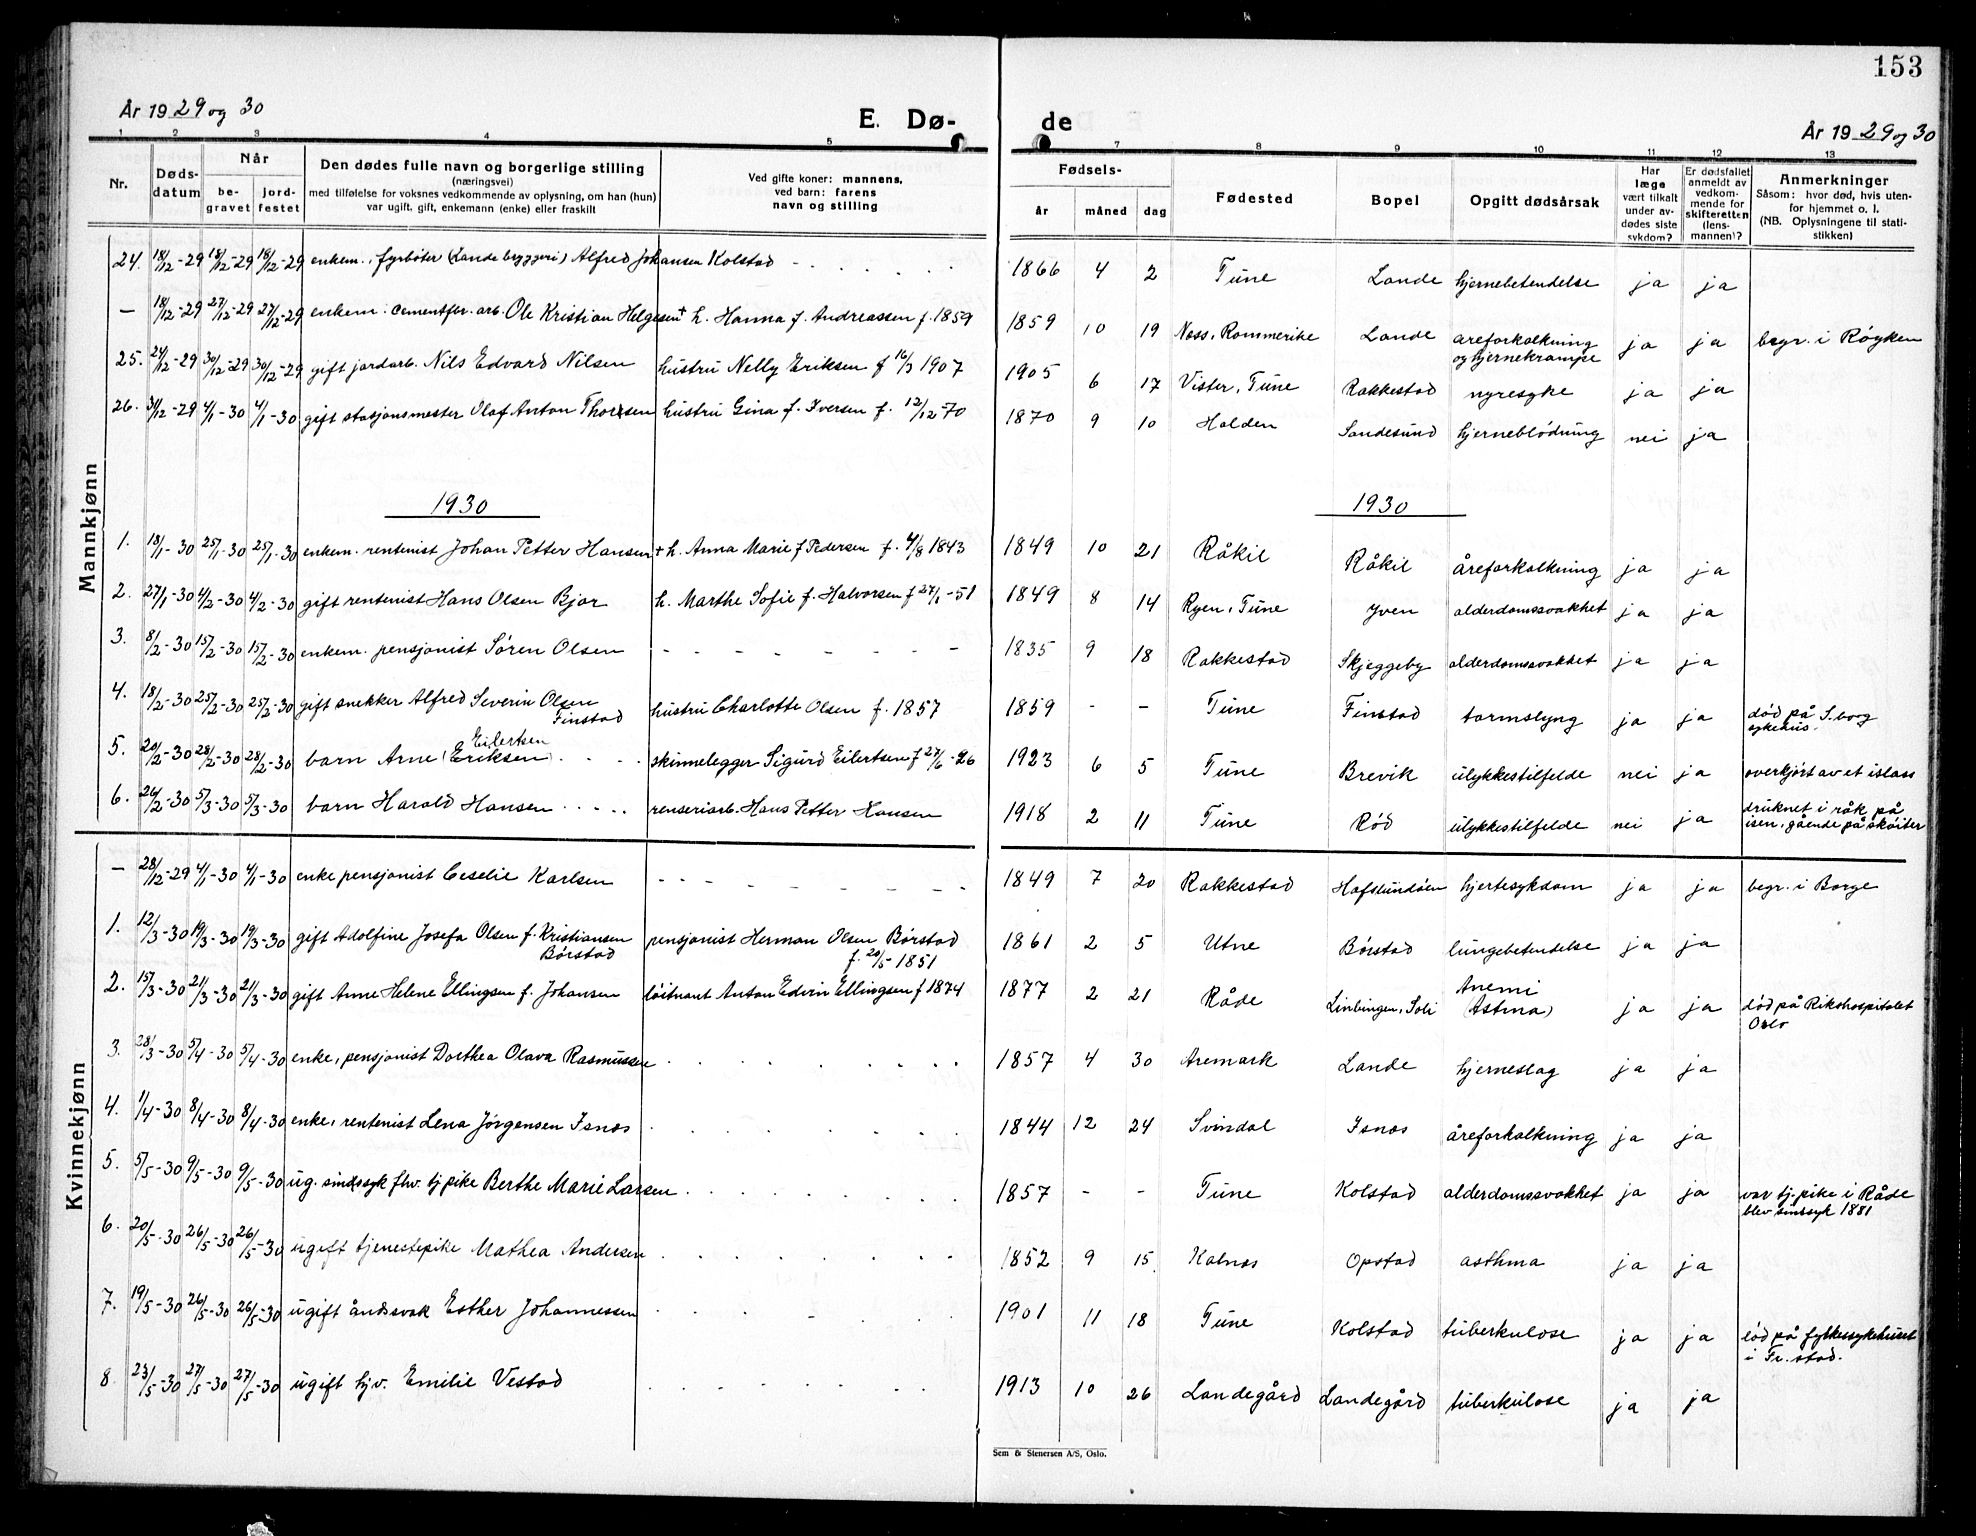 153
År 1929 og 30
E. Dø-
de
År 1929 og 30
1 2 3 4 5 7 8 9 10 11 12 13
Nr. | Døds-datum | Når be-gravet | jord-festet | Den dødes fulle navn og borgerlige stilling (næringsvei) med tilføielse for voksnes vedkommende av oplysning, om han (hun) var ugift, gift, enkemann (enke) eller fraskilt | Ved gifte koner: mannens, ved barn: farens navn og stilling | Fødsels- år | måned | dag | Fødested | Bopel | Opgitt dødsårsak | Har læge vært tilkalt under av-dødes siste sykdom? | Er dødsfallet anmeldt av vedkom-mende for skifteretten (lens-mannen)? | Anmerkninger Såsom: hvor død, hvis uten-for hjemmet o. l. (NB. Oplysningene til stati-stikken)
Mannkjønn
24. 18/12-29 18/12-29 18/12-29 enkem., fyrbøter (Lande bryggeri) Alfred Johansen Kolstad - 1866 4 2 Tune Lande hjernebetendelse ja ja
— 18/12-29 27/12-29 27/12-29 enkem. cementfbr. arb. Ole Kristian Helgesen + h. Hanna f. Andreassen f. 1859 1859 10 19 Ness, Rommerike Lande åreforkalkning og hjernekrampe ja ja begr. i Røyken
25. 24/12-29 30/12-29 30/12-29 gift jordarb. Nils Edvard Nilsen hustru Nelly Eriksen f 16/3 1907 1905 6 17 Vister, Tune Rakkestad nyresyke ja ja
26. 31/12-29 4/1-30 4/1-30 gift stasjonsmester Olaf Anton Thoresen hustru Gina f. Iversen f. 12/12 70 1870 9 10 Halden Sandesund hjerneblødning nei ja
1930 1930
1. 18/1-30 25/1-30 25/1-30 enkem. rentenist Johan Petter Hansen + h. Anna Marie f Pedersen f. 4/8 1843 1849 10 21 Råkil Råkil åreforkalkning ja ja
2. 27/1-30 4/2-30 4/2-30 gift rentenist Hans Olsen Bjor h. Marthe Sofie f. Halvorsen f 27/1-51 1849 8 14 Ryen, Tune Yven alderdomssvakhet ja ja
3. 8/2-30 15/2-30 15/2-30 enkem. pensjonist Søren Olsen - - - - - - - - 1835 9 18 Rakkestad Skjeggeby alderdomssvakhet ja ja
4. 18/2-30 25/2-30 25/2-30 gift snekker Alfred Severin Olsen Finstad hustru Charlotte Olsen f. 1857 1859 - - Tune Finstad tarmslyng ja ja død på S.borg sykehus.
5. 20/2-30 28/2-30 28/2-30 barn Arne (Eriksen) Eilertsen skinnelegger Sigurd Eilertsen f 27/6-26 1923 6 5 Tune Brevik ulykkestilfelde nei ja overkjørt av et islass
6. 26/2-30 5/3-30 5/3-30 barn Harald Hansen renseriarb. Hans Petter Hansen 1918 2 11 Tune Rød ulykkestilfelde nei ja druknet i råk på isen, gående på skøiter
Kvinnekjønn
— 28/12-29 4/1-30 4/1-30 enke pensjonist Ceselie Karlsen - - - - - - - - 1849 7 20 Rakkestad Hafslundøen hjertesykdom ja ja begr. i Borge
1. 12/3-30 19/3-30 19/3-30 gift Adolfine Josefa Olsen f. Kristiansen Børstad pensjonist Herman Olsen Børstad f. 20/5 1851 1861 2 5 Utne Børstad lungebetendelse ja ja
2. 15/3-30 21/3-30 21/3-30 gift Anne Helene Ellingsen f. Johansen løitnant Anton Edvin Ellingsen f 1874 1877 2 21 Råde Linbingen, Soli Anemi (Astma) ja ja død på Rikshospitalet Oslo
3. 28/3-30 5/4-30 5/4-30 enke, pensjonist Dorthea Olava Rasmussen 1857 4 30 Aremark Lande hjerneslag ja ja
4. 1/4-30 8/4-30 8/4-30 enke, rentenist Lena Jørgensen Isnæs 1844 12 24 Svindal Isnæs åreforkalkning ja ja
5. 5/5-30 9/5-30 9/5-30 ug. sindssyk fhv. tj pike Berthe Marie Larsen 1857 - - Tune Kolstad alderdomssvakhet ja ja var tj. pike i Råde blev sinssyk 1881
6. 20/5-30 26/5-30 26/5-30 ugift tjenestepike Mathea Andersen 1852 9 15 Kalnæs Opstad asthma ja ja
7. 19/5-30 26/5-30 26/5-30 ugift åndssvak Esther Johannessen 1901 11 18 Tune Kolstad tuberkulose ja ja død på fylkessykehuset i Fr.stad.
8. 23/5-30 27/5-30 27/5-30 ugift hjv. Emilie Vestad 1913 10 26 Landegård Landegård tuberkulose ja ja
Sem & Stenersen A/S, Oslo.